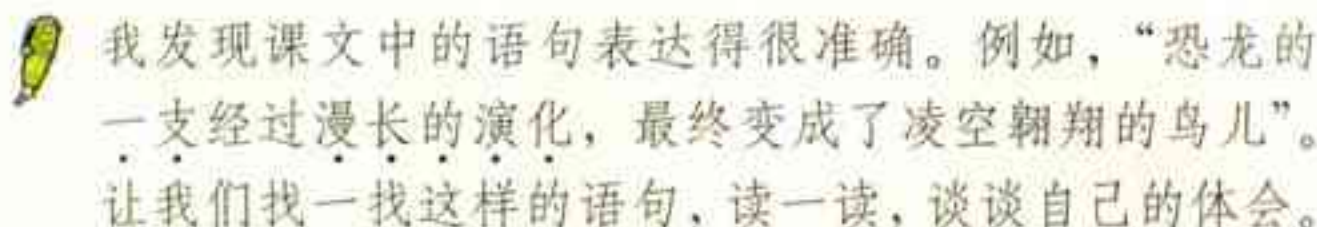 我发现课文中的语句表达得很准确。例如，“恐龙的
一支经过漫长的演化，最终变成了凌空翱翔的鸟儿”。
让我们找一找这样的语句，读一读，谈谈自己的体会。